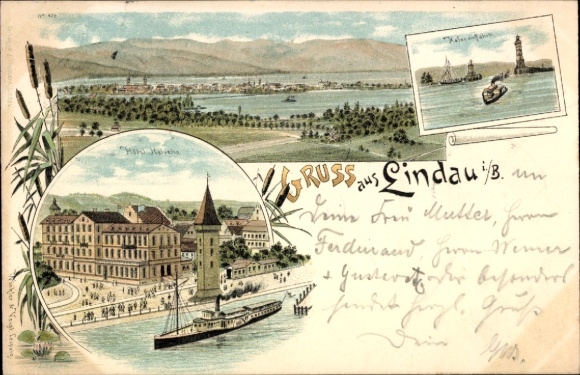 No. 420
Hafeneinfahrt
Hôtel Helvetia
GRUSS aus Lindau i/B. un
Deine Frau Mutter, Herrn
Ferdinand, Herrn Werner
& Gustav die besonders
sendet herzl. Gruß
Dein